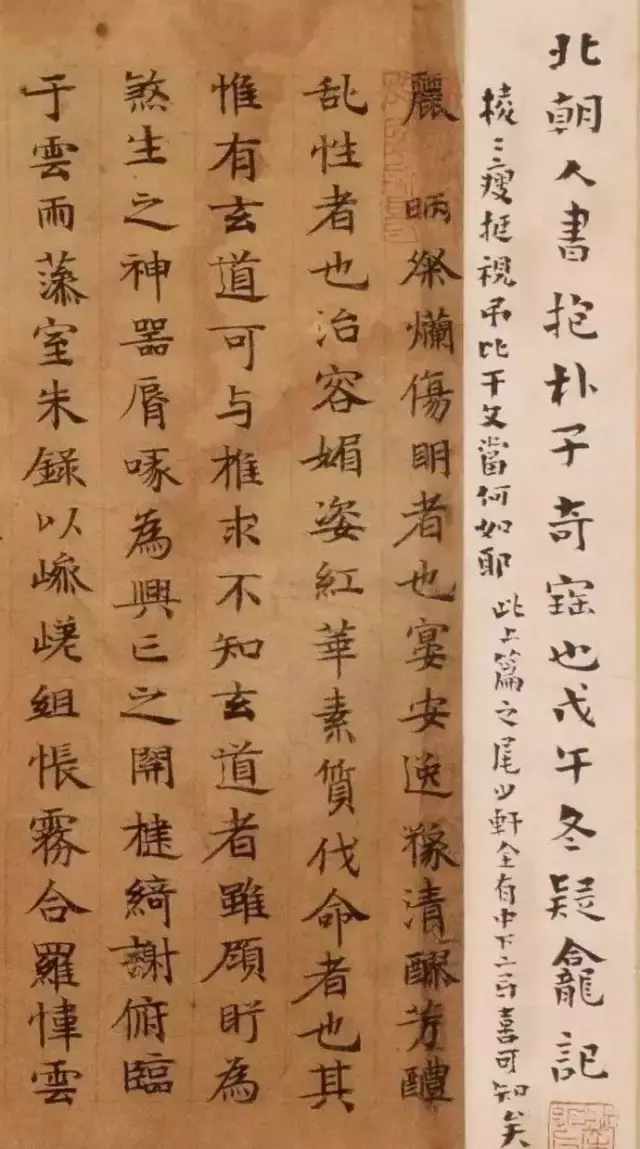 北朝人書抱朴子奇寚也戊午冬疑龕記
棱〻瘦挺視弔比干文當何如耶 此上篇之尾少軒全有中下二喜可知矣
麗 昞粲爛傷明者也宴安逸豫清醪芳醴
乱性者也治容媚姿紅華素質伐命者也其
惟有玄道可与推求不知玄道者雖顧盻為
煞生之神器脣啄為興亡之開楗綺謝俯臨
于雲雨藻室朱錄以嵾嵯組帳霧合羅幃雲